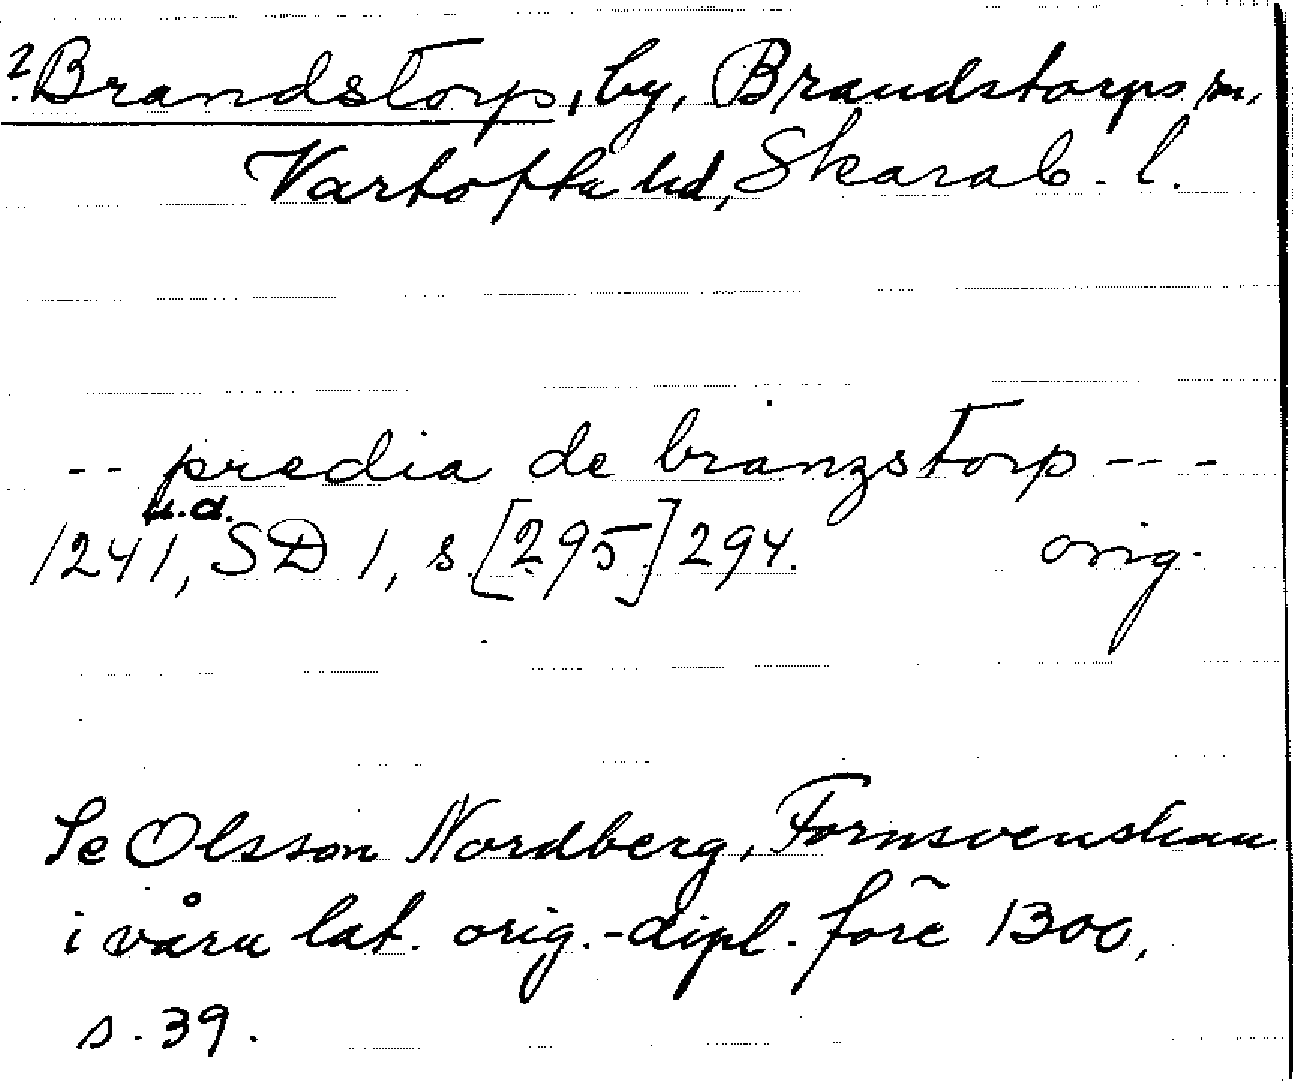 ?Brandstorp, by, Brandstorps sn,
Vartofta hd, Skarab. l.
-- predia de branzstorp ---
u.d.
1241, SD 1, s. [295] 294. orig.
Se Olsson Nordberg, Fornsvenskan
i våra lat. orig.-dipl. före 1300,
s. 39.